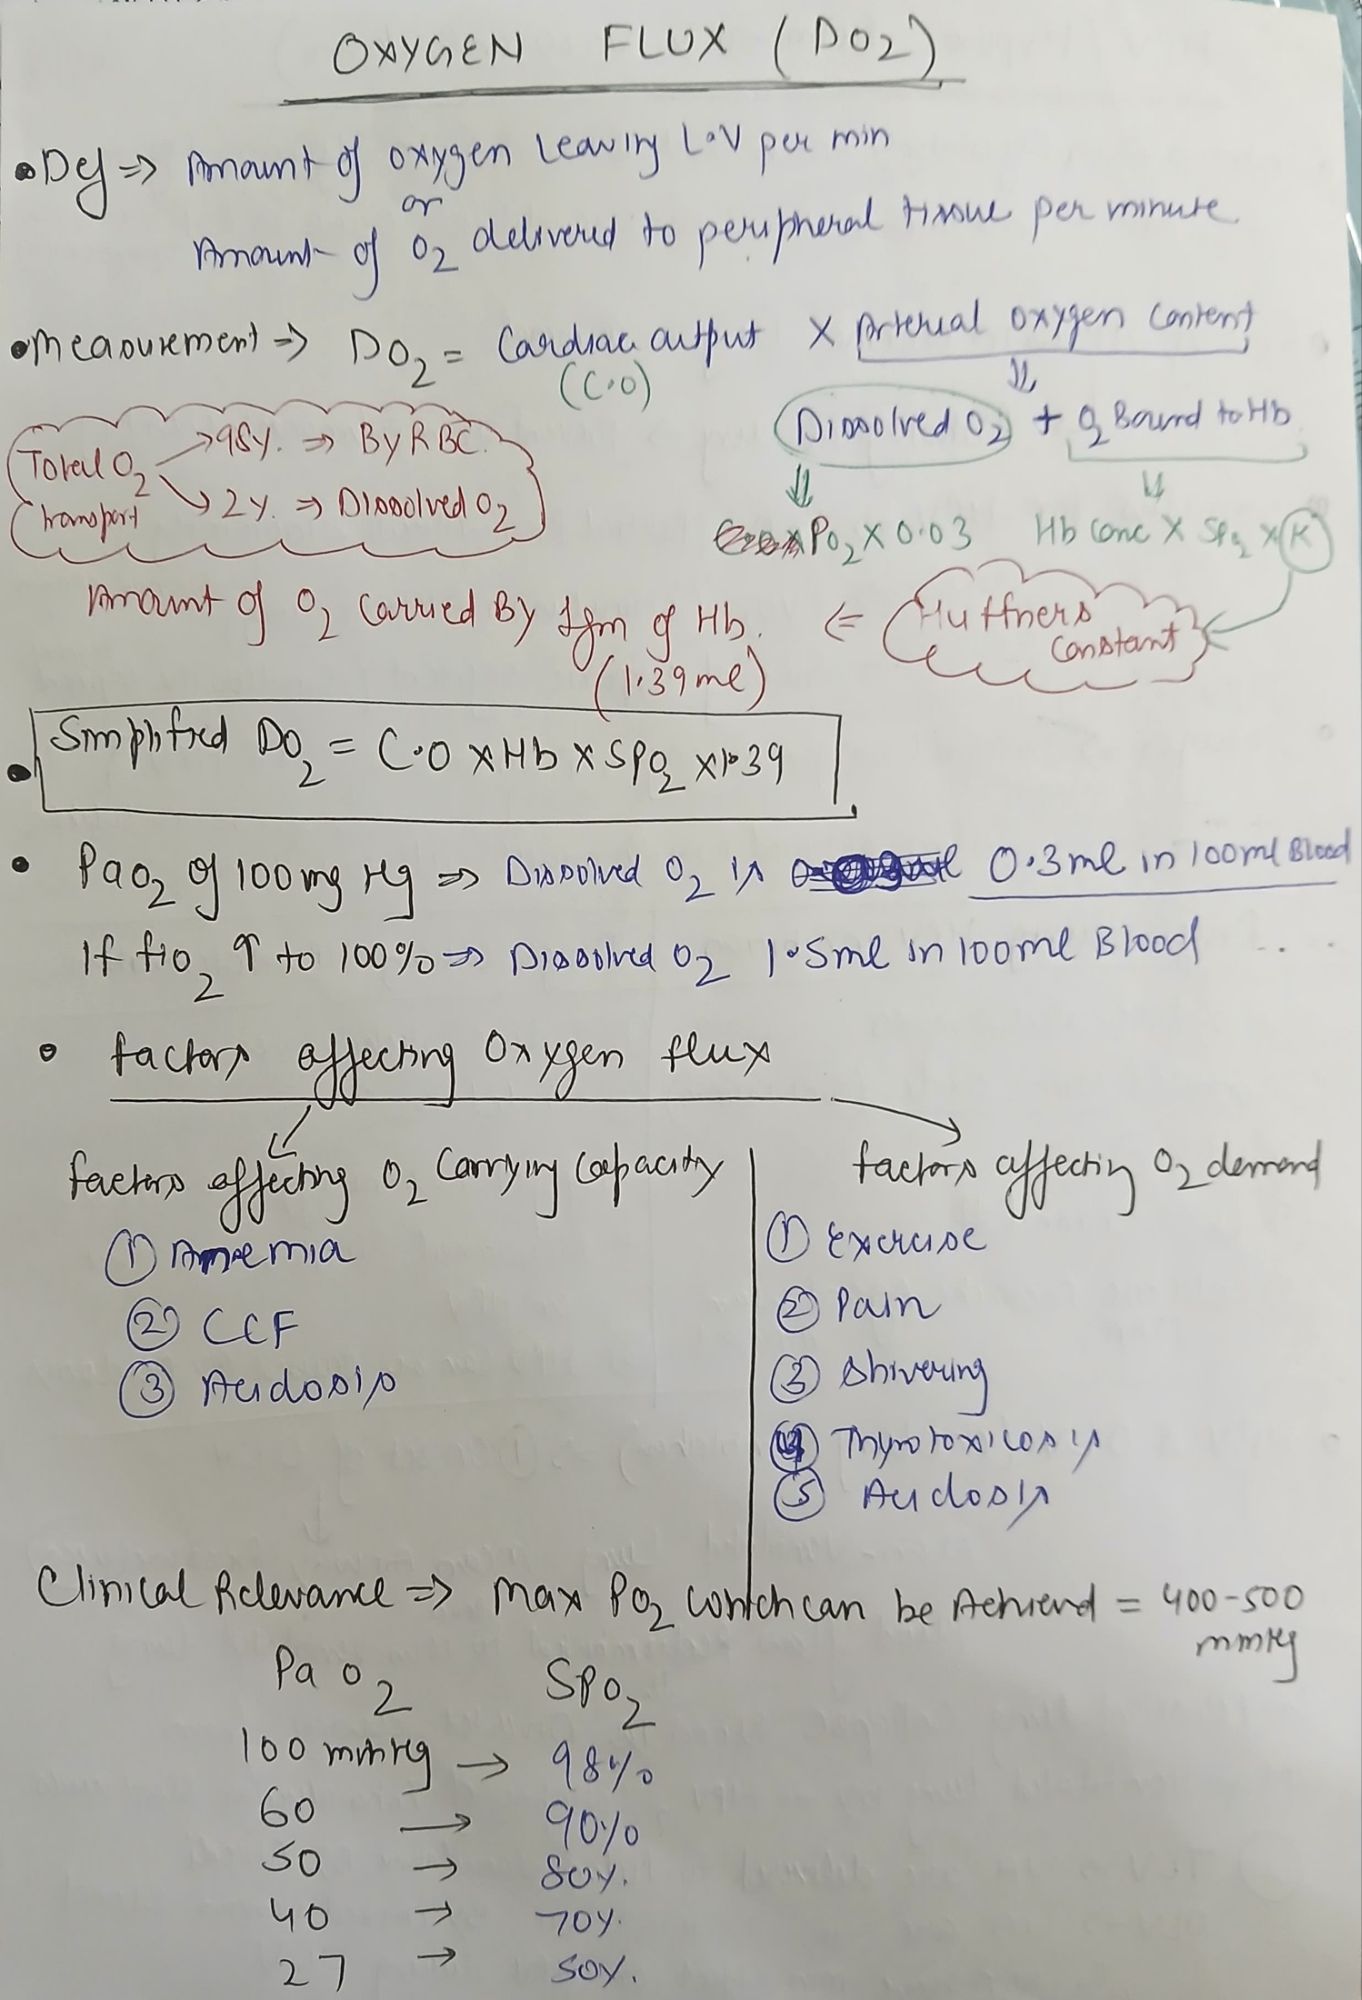 OXYGEN FLUX (DO2)
• Def ⇒ Amount of oxygen Leaving L.V per min
or
Amount of O2 delivered to peripheral tissue per minute
• Measurement ⇒ DO2 = Cardiac output X Arterial oxygen content
(C.O)
⇓
Dissolved O2 + O2 Bound to Hb
Total O2 transport → 98% ⇒ By RBC
↘ 2% ⇒ Dissolved O2
⇓ ⇓
PO2 X 0.03 Hb Conc X SPO2 X K
Amount of O2 Carried By 1gm of Hb. ⇐ Huffners Constant
(1.39 ml)
• Simplified DO2 = C.O X Hb X SPO2 X 1.39
• PaO2 of 100 mg Hg ⇒ Dissolved O2 is 0.3 ml in 100 ml Blood
If fio2 ↑ to 100% ⇒ Dissolved O2 1.5ml in 100ml Blood
• factors affecting Oxygen flux
factors affecting O2 Carrying Capacity factors affectin O2 demand
① Anaemia
② CCF
③ Acidosis
① Exercise
② Pain
③ Shivering
④ Thyrotoxicosis
⑤ Acidosis
Clinical Relevance ⇒ Max PO2 which can be Achievd = 400-500
mmHg
PaO2 SPO2
100 mmHg → 98%
60 → 90%
50 → 80%.
40 → 70%.
27 → 50%.